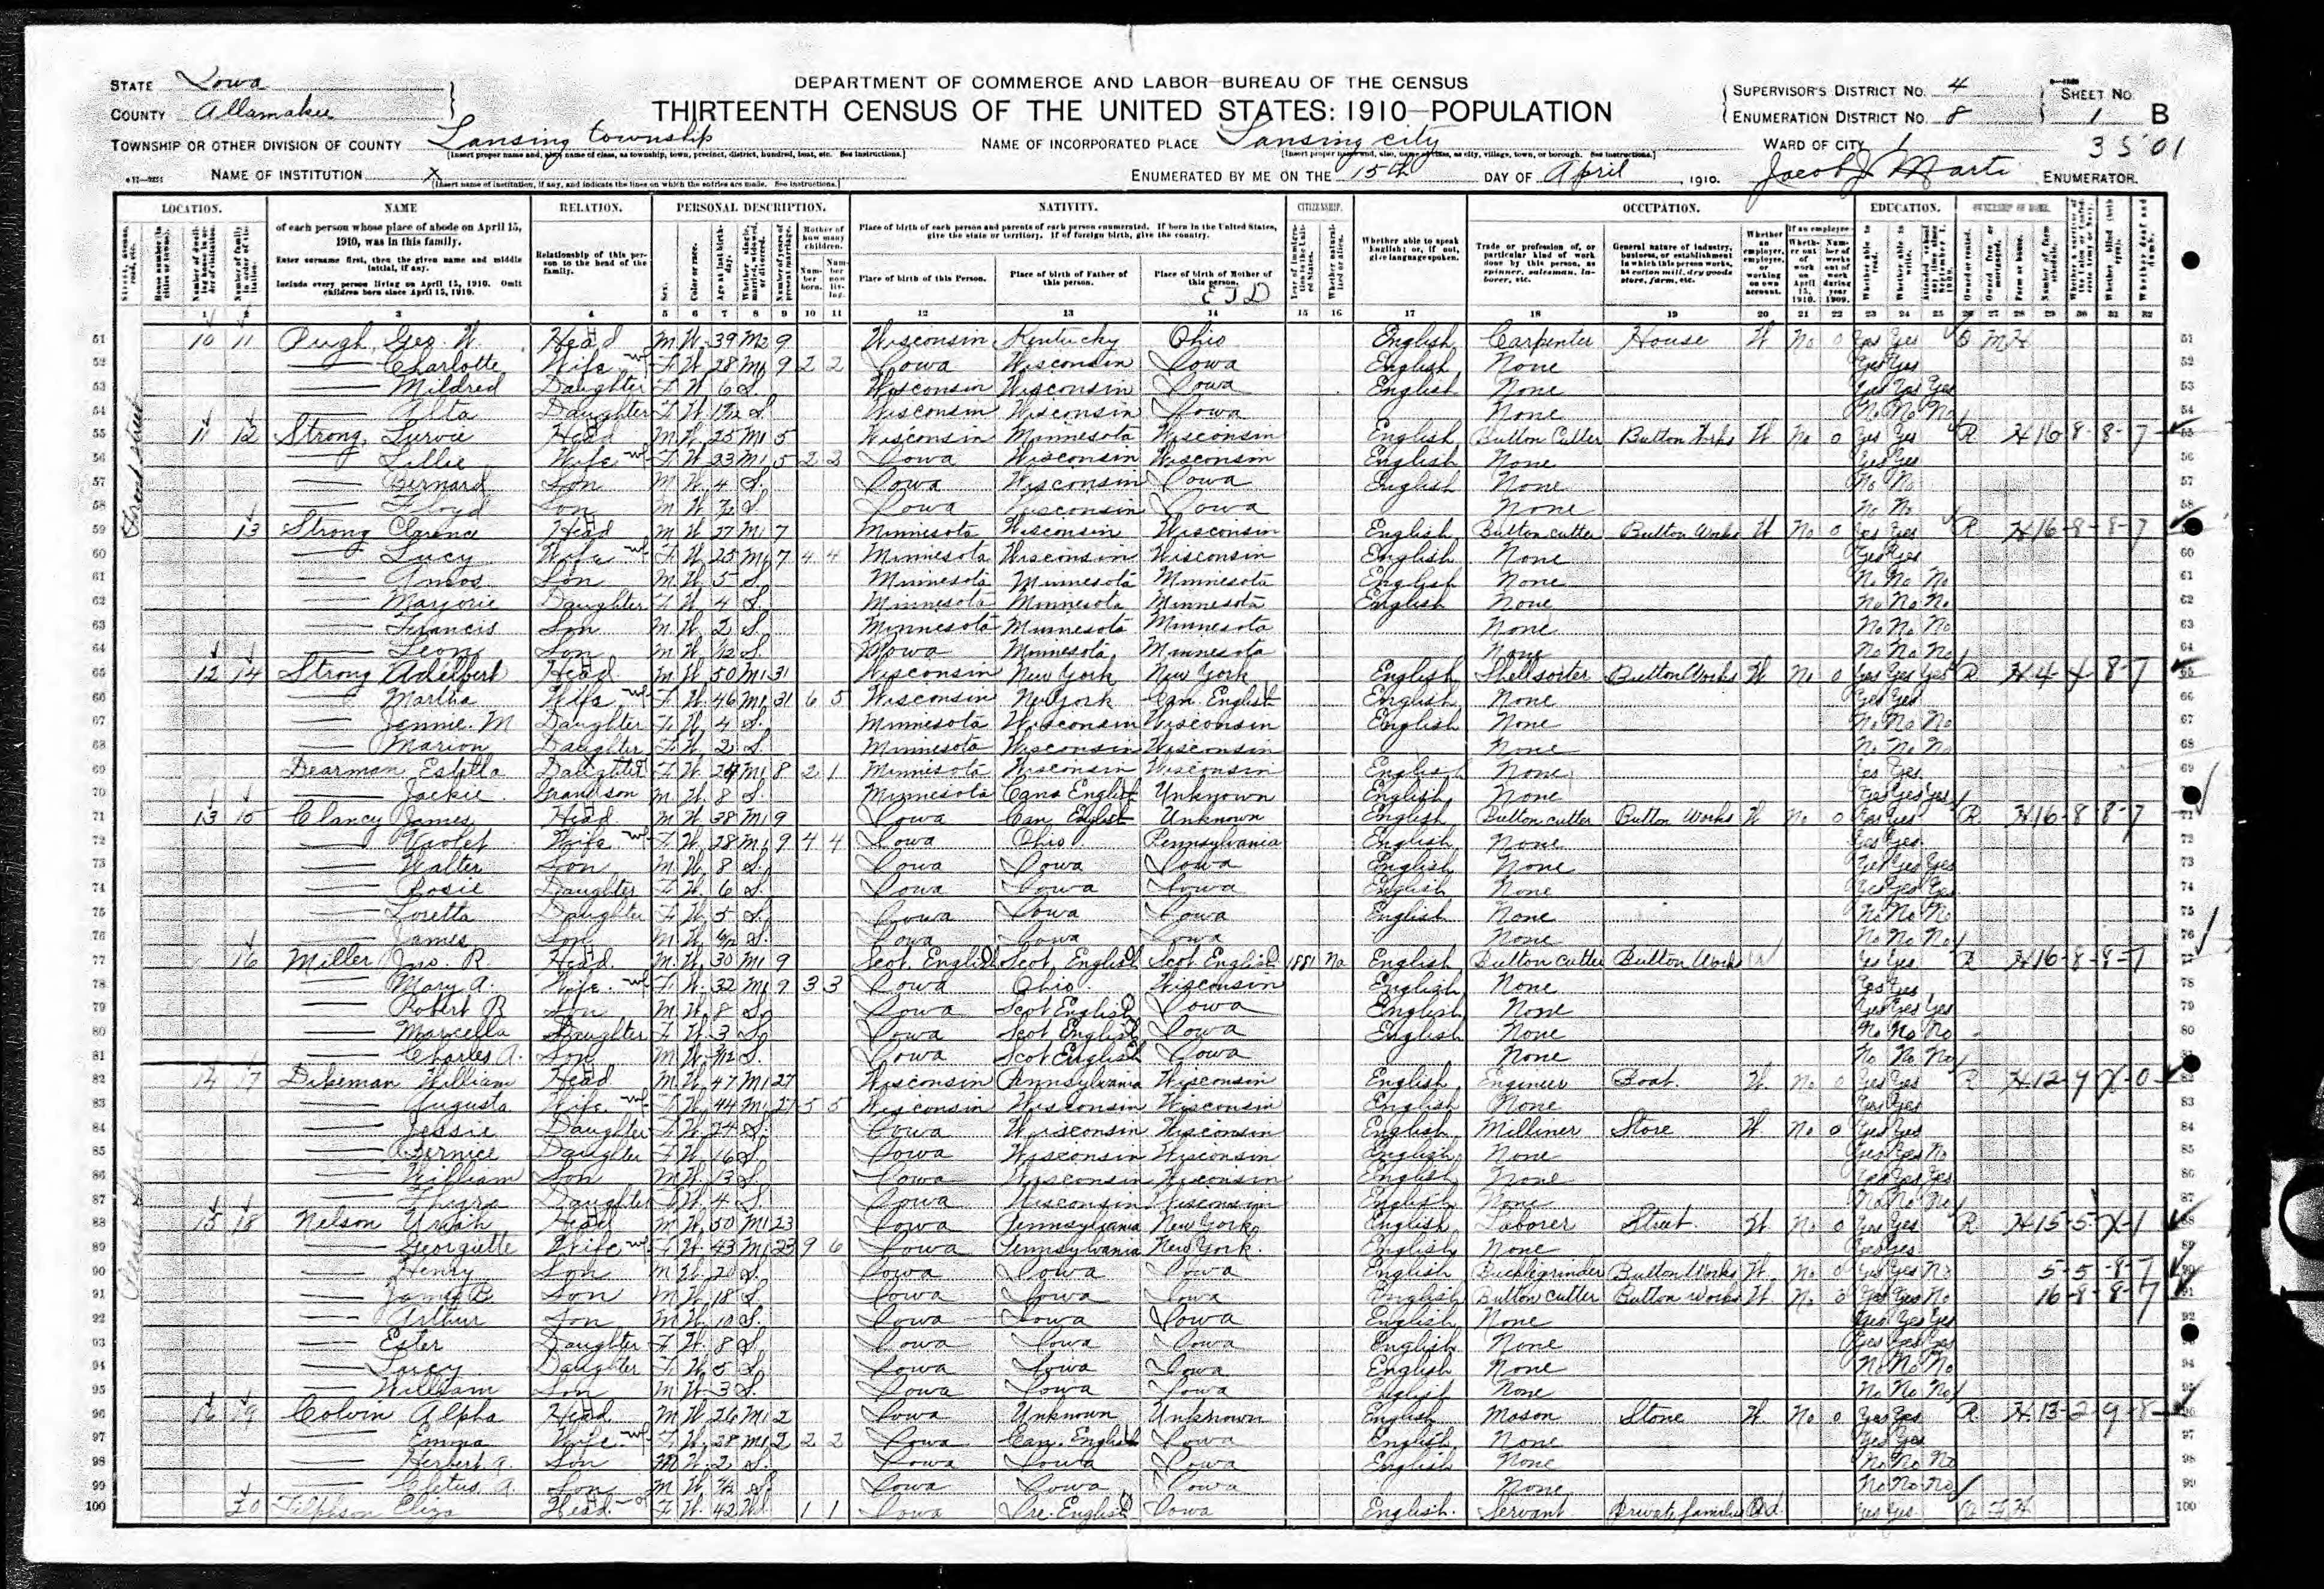 DEPARTMENT OF COMMERCE AND LABOR—BUREAU OF THE CENSUS
THIRTEENTH CENSUS OF THE UNITED STATES: 1910—POPULATION
STATE Iowa
COUNTY Allamakee
TOWNSHIP OR OTHER DIVISION OF COUNTY Lansing township
NAME OF INSTITUTION X
NAME OF INCORPORATED PLACE Lansing city
ENUMERATED BY ME ON THE 15th DAY OF April, 1910. Jacob J. Marti ENUMERATOR.
SUPERVISOR'S DISTRICT No. 4
ENUMERATION DISTRICT No. 8
SHEET No. 1 B
WARD OF CITY 1
3501
LOCATION. NAME RELATION. PERSONAL DESCRIPTION. NATIVITY. CITIZENSHIP. OCCUPATION. EDUCATION. OWNERSHIP OF HOME.
of each person whose place of abode on April 15, 1910, was in this family.
Enter surname first, then the given name and middle initial, if any.
Include every person living on April 15, 1910. Omit children born since April 15, 1910.
Relationship of this person to the head of the family.
Place of birth of each person and parents of each person enumerated. If born in the United States, give the state or territory. If of foreign birth, give the country.
Place of birth of this Person. Place of birth of Father of this person. Place of birth of Mother of this person.
Whether able to speak English; or, if not, give language spoken.
Trade or profession of, or particular kind of work done by this person, as spinner, salesman, laborer, etc.
General nature of industry, business, or establishment in which this person works, as cotton mill, dry goods store, farm, etc.
51 10 11 Pugh, Geo. W. Head M W 39 M2 9 Wisconsin Kentucky Ohio English Carpenter House W No 0 Yes Yes O M H
52 Charlotte Wife F W 28 M1 9 2 2 Iowa Wisconsin Iowa English None Yes Yes
53 Mildred Daughter F W 6 S Wisconsin Wisconsin Iowa English None Yes Yes Yes
54 Alta Daughter F W S Wisconsin Wisconsin Iowa None No No No
55 11 12 Strong, Head M W 25 M1 5 Wisconsin Minnesota Wisconsin English Button Cutter Button Works W No 0 Yes Yes R H 16-8-8-7
56 Lillie Wife F W 23 M1 5 2 2 Iowa Wisconsin Wisconsin English None Yes Yes
57 Bernard Son M W 4 S Iowa Wisconsin Iowa English None No No
58 Floyd Son M W S Iowa Wisconsin Iowa None No No
59 13 Strong Clarence Head M W 27 M1 7 Minnesota Wisconsin Wisconsin English Button cutter Button Works W No 0 Yes Yes R H 16-8-8-7
60 Lucy Wife F W 25 M1 7 4 4 Minnesota Wisconsin Wisconsin English None Yes Yes
61 Amos Son M W 5 S Minnesota Minnesota Minnesota English None No No No
62 Marjorie Daughter F W 4 S Minnesota Minnesota Minnesota English None No No No
63 Francis Son M W 2 S Minnesota Minnesota Minnesota None No No No
64 Leon Son M W S Iowa Minnesota Minnesota None No No No
65 12 14 Strong Adelbert Head M W 50 M1 31 Wisconsin New York New York English Shell sorter Button Works W No 0 Yes Yes R H 4-4-8-7
66 Martha Wife F W 46 M1 31 6 5 Wisconsin New York Can. English English None Yes Yes
67 Jennie M Daughter F W 4 S Minnesota Wisconsin Wisconsin English None No No No
68 Marion Daughter F W 2 S Minnesota Wisconsin Wisconsin None No No No
69 Dearman Estella Daughter F W M1 8 2 1 Minnesota Wisconsin Wisconsin English None Yes Yes
70 Jackie Grandson M W 8 S Minnesota Cana English Unknown English None Yes Yes Yes
71 13 15 Clancy James Head M W 38 M1 9 Iowa Can English Unknown English Button cutter Button Works W No 0 Yes Yes R H 16-8-8-7
72 Violet Wife F W 28 M1 9 4 4 Iowa Ohio Pennsylvania English None Yes Yes
73 Walter Son M W 8 S Iowa Iowa Iowa English None Yes Yes Yes
74 Rosie Daughter F W 6 S Iowa Iowa Iowa English None Yes Yes Yes
75 Loretta Daughter F W 5 S Iowa Iowa Iowa English None No No No
76 James Son M W S Iowa Iowa Iowa None No No No
77 16 Miller Jno. R. Head M W 30 M1 9 Scot. English Scot. English Scot English 1881 Na English Button cutter Button Works W Yes Yes R H 16-8-8-7
78 Mary A. Wife F W 32 M1 9 3 3 Iowa Ohio Wisconsin English None Yes Yes
79 Robert R Son M W 8 S Iowa Scot English Iowa English None Yes Yes Yes
80 Marcella Daughter F W 3 S Iowa Scot English Iowa English None No No No
81 Charles A. Son M W S Iowa Scot English Iowa None No No No
82 14 17 Dikeman William Head M W 47 M1 27 Wisconsin Pennsylvania Wisconsin English Engineer Boat W No 0 Yes Yes R H 12-9-X-0
83 Augusta Wife F W 44 M1 27 5 5 Wisconsin Wisconsin Wisconsin English None Yes Yes
84 Jessie Daughter F W 24 S Iowa Wisconsin Wisconsin English Milliner Store W No 0 Yes Yes
85 Bernice Daughter F W 16 S Iowa Wisconsin Wisconsin English None Yes Yes No
86 William Son M W 13 S Iowa Wisconsin Wisconsin English None Yes Yes Yes
87 Thyra Daughter F W 4 S Iowa Wisconsin Wisconsin English None No No No
88 15 18 Nelson Uriah Head M W 50 M1 23 Iowa Pennsylvania New York English Laborer Street W No 0 Yes Yes R H 15-5-X-1
89 Georgiette Wife F W 43 M1 23 9 6 Iowa Pennsylvania New York English None Yes Yes
90 Henry Son M W 20 S Iowa Iowa Iowa English Button Works W No 0 Yes Yes No 5-5-8-7
91 James B. Son M W 18 S Iowa Iowa Iowa English Button cutter Button works W No 0 Yes Yes No 16-8-8-7
92 Arthur Son M W 10 S Iowa Iowa Iowa English None Yes Yes Yes
93 Ester Daughter F W 8 S Iowa Iowa Iowa English None Yes Yes Yes
94 Lucy Daughter F W 5 S Iowa Iowa Iowa English None No No No
95 William Son M W 3 S Iowa Iowa Iowa English None No No No
96 16 19 Colvin Alpha Head M W 26 M1 2 Iowa Unknown Unknown English Mason Stone W No 0 Yes Yes R H 13-2-9-8
97 Emma Wife F W 28 M1 2 2 2 Iowa Can. English Iowa English None Yes Yes
98 Herbert A. Son M W 2 S Iowa Iowa Iowa English None No No No
99 Cletus A Son M W S Iowa Iowa Iowa None No No No
100 20 Eliza Head F W 42 Wd 1 1 Iowa Ire. English Iowa English Servant Private families Yes Yes O F H